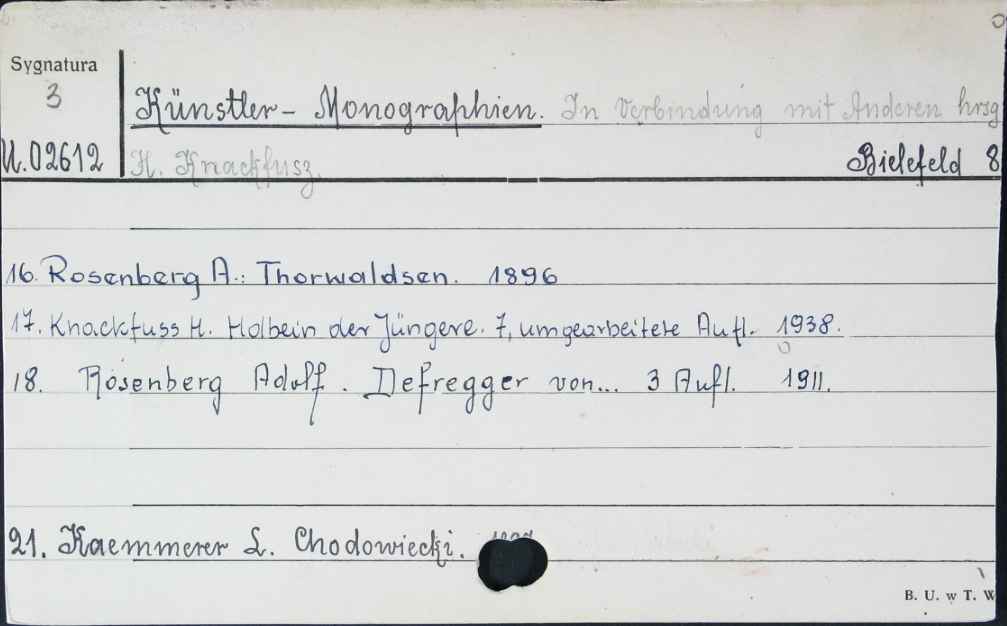 Sygnatura
3
Künstler - Monographien. In Verbindung mit Anderen hrsg
U.02612 H. Knackfusz. Bielefeld 8
16. Rosenberg A.: Thorwaldsen. 1896
17. Knackfuss H. Holbein der Jüngere. 7, umgearbeitete Aufl. 1938.
18. Rosenberg Adolf. Defregger von... 3 Aufl. 1911.
21. Kaemmerer L. Chodowiecki.
B. U. w T. W